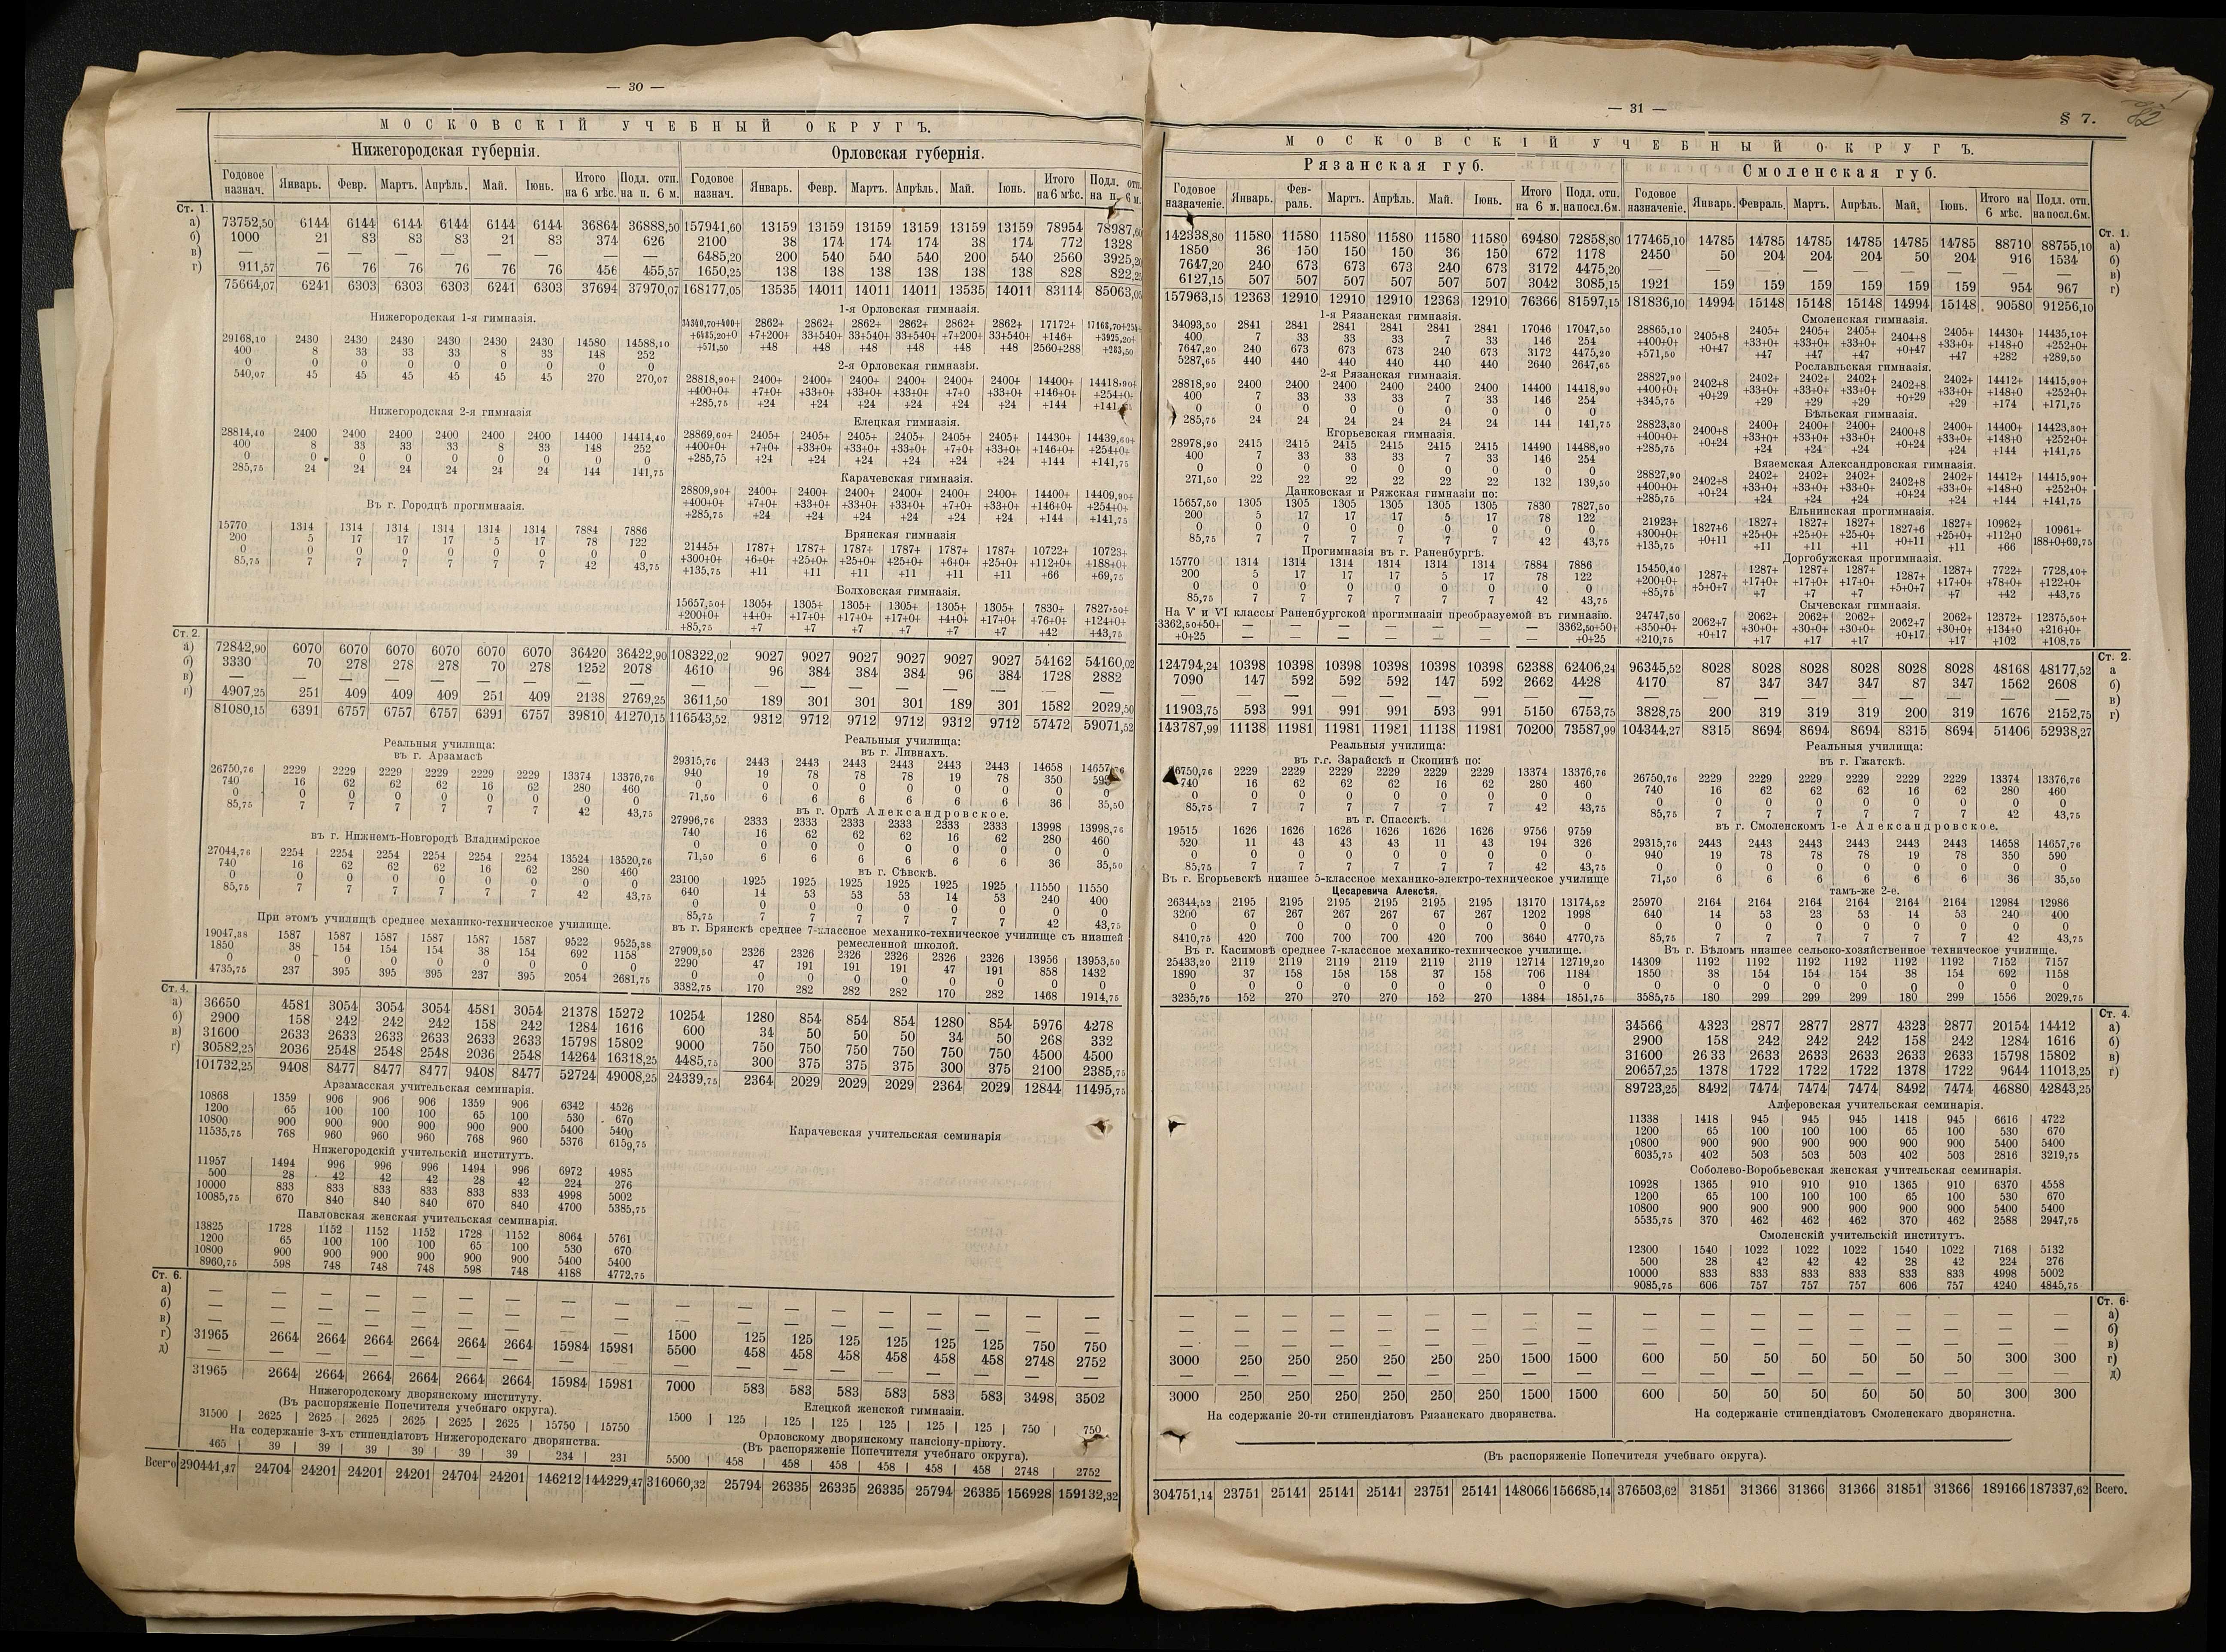 — 30 —
МОСКОВСКІЙ УЧЕБНЫЙ ОКРУГЪ.
Нижегородская губернія. Орловская губернія.
Годовое назнач. Январь. Февр. Мартъ. Апрѣль. Май. Іюнь. Итого на 6 мѣс. Подл. отп. на п. 6 м. Годовое назнач. Январь. Февр. Мартъ. Апрѣль. Май. Іюнь. Итого на 6 мѣс. Подл. отп. на п. 6 м.
Ст. 1.
а) 73752,50 6144 6144 6144 6144 6144 6144 36864 36888,50 157941,60 13159 13159 13159 13159 13159 13159 78954 78987,60
б) 1000 21 83 83 83 21 83 374 626 2100 38 174 174 174 38 174 772 1328
в) — — — — — — — — — 6485,20 200 540 540 540 200 540 2560 3925,20
г) 911,57 76 76 76 76 76 76 456 455,57 1650,25 138 138 138 138 138 138 828 822,25
75664,07 6241 6303 6303 6303 6241 6303 37694 37970,07 168177,05 13535 14011 14011 14011 13535 14011 83114 85063,05
Нижегородская 1-я гимназія.
29168,10 2430 2430 2430 2430 2430 2430 14580 14588,10
400 8 33 33 33 8 33 148 252
0 0 0 0 0 0 0 0 0
540,07 45 45 45 45 45 45 270 270,07
Нижегородская 2-я гимназія
28814,40 2400 2400 2400 2400 2400 2400 14400 14414,40
400 8 33 33 33 8 33 148 252
0 0 0 0 0 0 0 0 0
285,75 24 24 24 24 24 24 144 141,75
Въ г. Городцѣ прогимназія.
15770 1314 1314 1314 1314 1314 1314 7884 7886
200 5 17 17 17 5 17 78 122
0 0 0 0 0 0 0 0 0
85,75 7 7 7 7 7 7 42 43,75
1-я Орловская гимназія.
34340,70+400+ 2862+ 2862+ 2862+ 2862+ 2862+ 2862+ 17172+ 17168,70+254+
+6485,20+0 +7+200+ 33+540+ 33+540+ 33+540+ +7+200+ 33+540+ +146+ +3925,20+
+571,50 +48 +48 +48 +48 +48 +48 2560+288 +283,50
2-я Орловская гимназія.
28818,90+ 2400+ 2400+ 2400+ 2400+ 2400+ 2400+ 14400+ 14418,90+
+400+0+ +7+0+ +33+0+ +33+0+ +33+0+ +7+0 +33+0+ +146+0+ +254+0+
+285,75 +24 +24 +24 +24 +24 +24 +144
Елецкая гимназія.
28869,60+ 2405+ 2405+ 2405+ 2405+ 2405+ 2405+ 14430+ 14439,60+
+400+0+ +7+0+ +33+0+ +33+0+ +33+0+ +7+0+ +33+0+ +146+0+ +254+0+
+285,75 +24 +24 +24 +24 +24 +24 +144 +141,75
Карачевская гимназія.
28809,90+ 2400+ 2400+ 2400+ 2400+ 2400+ 2400+ 14400+ 14409,90+
+400+0+ +7+0+ +33+0+ +33+0+ +33+0+ +7+0+ +33+0+ +146+0+ +254+0+
+285,75 +24 +24 +24 +24 +24 +24 +144 +141,75
Брянская гимназія
21445+ 1787+ 1787+ 1787+ 1787+ 1787+ 1787+ 10722+ 10723+
+300+0+ +6+0+ +25+0+ +25+0+ +25+0+ +6+0+ +25+0+ +112+0+ +188+0+
+135,75 +11 +11 +11 +11 +11 +11 +66 +69,75
Болховская гимназія.
15657,50+ 1305+ 1305+ 1305+ 1305+ 1305+ 1305+ 7830+ 7827,50+
+200+0+ +4+0+ +17+0+ +17+0+ +17+0+ +4+0+ +17+0+ +76+0+ +124+0+
+85,75 +7 +7 +7 +7 +7 +7 +42 +43,75
Ст. 2.
а) 72842,90 6070 6070 6070 6070 6070 6070 36420 36422,90 108322,02 9027 9027 9027 9027 9027 9027 54162 54160,02
б) 3330 70 278 278 278 70 278 1252 2078 4610 96 384 384 384 96 384 1728 2882
в) — — — — — — — — — — — — — — — — —
г) 4907,25 251 409 409 409 251 409 2138 2769,25 3611,50 189 301 301 301 189 301 1582 2029,50
81080,15 6391 6757 6757 6757 6391 6757 39810 41270,15 116543,52 9312 9712 9712 9712 9312 9712 57472 59071,52
Реальныя училища:
въ г. Арзамасѣ
26750,76 2229 2229 2229 2229 2229 2229 13374 13376,76
740 16 62 62 62 16 62 280 460
0 0 0 0 0 0 0 0 0
85,75 7 7 7 7 7 7 42 43,75
въ г. Нижнемъ-Новгородѣ Владимірское
27044,76 2254 2254 2254 2254 2254 2254 13524 13520,76
740 16 62 62 62 16 62 280 460
0 0 0 0 0 0 0 0 0
85,75 7 7 7 7 7 7 42 43,75
При этомъ училищѣ среднее механико-техническое училище.
19047,38 1587 1587 1587 1587 1587 1587 9522 9525,38
1850 38 154 154 154 38 154 692 1158
0 0 0 0 0 0 0 0 0
4735,75 237 395 395 395 237 395 2054 2681,75
Реальныя училища:
въ г. Ливнахъ.
29315,76 2443 2443 2443 2443 2443 2443 14658 14657,76
940 19 78 78 78 19 78 350
0 0 0 0 0 0 0 0 0
71,50 6 6 6 6 6 6 36 35,50
въ г. Орлѣ Александровское.
27996,76 2333 2333 2333 2333 2333 2333 13998 13998,76
740 16 62 62 62 16 62 280 460
0 0 0 0 0 0 0 0 0
71,50 6 6 6 6 6 6 36 35,50
въ г. Сѣвскѣ.
23100 1925 1925 1925 1925 1925 1925 11550 11550
640 14 53 53 53 14 53 240 400
0 0 0 0 0 0 0 0 0
85,75 7 7 7 7 7 7 42 43,75
въ г. Брянскѣ среднее 7-классное механико-техническое училище съ низшей
ремесленной школой.
27909,50 2326 2326 2326 2326 2326 2326 13956 13953,50
2290 47 191 191 191 47 191 858 1432
0 0 0 0 0 0 0 0 0
3382,75 170 282 282 282 170 282 1468 1914,75
Ст. 4.
а) 36650 4581 3054 3054 3054 4581 3054 21378 15272 10254 1280 854 854 854 1280 854 5976 4278
б) 2900 158 242 242 242 158 242 1284 1616 600 34 50 50 50 34 50 268 332
в) 31600 2633 2633 2633 2633 2633 2633 15798 15802 9000 750 750 750 750 750 750 4500 4500
г) 30582,25 2036 2548 2548 2548 2036 2548 14264 16318,25 4485,75 300 375 375 375 300 375 2100 2385,75
101732,25 9408 8477 8477 8477 9408 8477 52724 49008,25 24339,75 2364 2029 2029 2029 2364 2029 12844 11495,75
Арзамасская учительская семинарія.
10868 1359 906 906 906 1359 906 6342 4526
1200 65 100 100 100 65 100 530 670
10800 900 900 900 900 900 900 5400 5400
11535,75 768 960 960 960 768 960 5376 6159,75
Карачевская учительская семинарія
Нижегородскій учительскій институтъ.
11957 1494 996 996 996 1494 996 6972 4985
500 28 42 42 42 28 42 224 276
10000 833 833 833 833 833 833 4998 5002
10085,75 670 840 840 840 670 840 4700 5385,75
Павловская женская учительская семинарія.
13825 1728 1152 1152 1152 1728 1152 8064 5761
1200 65 100 100 100 65 100 530 670
10800 900 900 900 900 900 900 5400 5400
8960,75 598 748 748 748 598 748 4188 4772,75
Ст. 6.
а) — — — — — — — — — — — — — — — — — —
б) — — — — — — — — — — — — — — — — — —
в) — — — — — — — — — 1500 125 125 125 125 125 125 750 750
г) 31965 2664 2664 2664 2664 2664 2664 15984 15981 5500 458 458 458 458 458 458 2748 2752
д) — — — — — — — — — — — — — — — — — —
31965 2664 2664 2664 2664 2664 2664 15984 15981 7000 583 583 583 583 583 583 3498 3502
Нижегородскому дворянскому институту.
(Въ распоряженіе Попечителя учебнаго округа).
31500 2625 2625 2625 2625 2625 2625 15750 15750
На содержаніе 3-хъ стипендіатовъ Нижегородскаго дворянства.
465 39 39 39 39 39 39 234 231
Елецкой женской гимназіи.
1500 125 125 125 125 125 125 750 750
Орловскому дворянскому пансіону-пріюту.
(Въ распоряженіе Попечителя учебнаго округа).
5500 458 458 458 458 458 458 2748 2752
Всего 290441,47 24704 24201 24201 24201 24704 24201 146212 144229,47 316060,32 25794 26335 26335 26335 25794 26335 156928 159132,32
— 31 —
§ 7.
82
МОСКОВСКІЙ УЧЕБНЫЙ ОКРУГЪ.
Рязанская губ. Смоленская губ.
Годовое назначеніе. Январь. Фев-раль. Мартъ. Апрѣль. Май. Іюнь. Итого на 6 м. Подл. отп. на посл. 6 м. Годовое назначеніе. Январь. Февраль. Мартъ. Апрѣль. Май. Іюнь. Итого на 6 мѣс. Подл. отп. на посл. 6 м.
Ст. 1.
142338,80 11580 11580 11580 11580 11580 11580 69480 72858,80 177465,10 14785 14785 14785 14785 14785 14785 88710 88755,10 а)
1850 36 150 150 150 36 150 672 1178 2450 50 204 204 204 50 204 916 1534 б)
7647,20 240 673 673 673 240 673 3172 4475,20 — — — — — — — — — в)
6127,15 507 507 507 507 507 507 3042 3085,15 1921 159 159 159 159 159 159 954 967 г)
157963,15 12363 12910 12910 12910 12363 12910 76366 81597,15 181836,10 14994 15148 15148 15148 14994 15148 90580 91256,10
1-я Рязанская гимназія.
34093,50 2841 2841 2841 2841 2841 2841 17046 17047,50
400 7 33 33 33 7 33 146 254
7647,20 240 673 673 673 240 673 3172 4475,20
5287,65 440 440 440 440 440 440 2640 2647,65
2-я Рязанская гимназія.
28818,90 2400 2400 2400 2400 2400 2400 14400 14418,90
400 7 33 33 33 7 33 146 254
0 0 0 0 0 0 0 0 0
285,75 24 24 24 24 24 24 144 141,75
Егорьевская гимназія.
28978,90 2415 2415 2415 2415 2415 2415 14490 14488,90
400 7 33 33 33 7 33 146 254
0 0 0 0 0 0 0 0 0
271,50 22 22 22 22 22 22 132 139,50
Данковская и Ряжская гимназіи по:
15657,50 1305 1305 1305 1305 1305 1305 7830 7827,50
200 5 17 17 17 5 17 78 122
0 0 0 0 0 0 0 0 0
85,75 7 7 7 7 7 7 42 43,75
Прогимназія въ г. Раненбургѣ.
15770 1314 1314 1314 1314 1314 1314 7884 7886
200 5 17 17 17 5 17 78 122
0 0 0 0 0 0 0 0 0
85,75 7 7 7 7 7 7 42 43,75
На V и VI классы Раненбургской прогимназіи преобразуемой въ гимназію.
3362,50+50+ — — — — — — — 3362,50+50+
+0+25 — — — — — — — +0+25
Смоленская гимназія.
28865,10 2405+8 2405+ 2405+ 2405+ 2404+8 2405+ 14430+ 14435,10+
+400+0+ +0+47 +33+0+ +33+0+ +33+0+ +0+47 +33+0+ +148+0 +252+0+
+571,50 +47 +47 +47 +47 +282 +289,50
Рославльская гимназія.
28827,90 2402+8 2402+ 2402+ 2402+ 2402+8 2402+ 14412+ 14415,90+
+400+0+ +0+29 +33+0+ +33+0+ +33+0+ +0+29 +33+0+ +148+0 +252+0+
+345,75 +29 +29 +29 +29 +174 +171,75
Бѣльская гимназія.
28823,30 2400+8 2400+ 2400+ 2400+ 2400+8 2400+ 14400+ 14423,30+
+400+0+ +0+24 +33+0+ +33+0+ +33+0+ +0+24 +33+0+ +148+0 +252+0+
+285,75 +24 +24 +24 +24 +144 +141,75
Вяземская Александровская гимназія.
28827,90 2402+8 2402+ 2402+ 2402+ 2402+8 2402+ 14412+ 14415,90+
+400+0+ +0+24 +33+0+ +33+0+ +33+0+ +0+24 +33+0+ +148+0 +252+0+
+285,75 +24 +24 +24 +24 +144 +141,75
Ельнинская прогимназія.
21923+ 1827+6 1827+ 1827+ 1827+ 1827+6 1827+ 10962+ 10961+
+300+0+ +0+11 +25+0+ +25+0+ +25+0+ +0+11 +25+0+ +112+0 188+0+69,75
+135,75 +11 +11 +11 +11 +66
Дорогобужская прогимназія.
15450,40 1287+ 1287+ 1287+ 1287+ 1287+ 1287+ 7722+ 7728,40+
+200+0+ +5+0+7 +17+0+ +17+0+ +17+0+ +5+0+7 +17+0+ +78+0+ +122+0+
+85,75 +7 +7 +7 +7 +42 +43,75
Сычевская гимназія.
24747,50 2062+7 2062+ 2062+ 2062+ 2062+7 2062+ 12372+ 12375,50+
+350+0+ +0+17 +30+0+ +30+0+ +30+0+ +0+17 +30+0+ +134+0 +216+0+
+210,75 +17 +17 +17 +17 +102 +108,75
Ст. 2.
124794,24 10398 10398 10398 10398 10398 10398 62388 62406,24 96345,52 8028 8028 8028 8028 8028 8028 48168 48177,52 а
7090 147 592 592 592 147 592 2662 4428 4170 87 347 347 347 87 347 1562 2608 б)
— — — — — — — — — — — — — — — — — — в)
11903,75 593 991 991 991 593 991 5150 6753,75 3828,75 200 319 319 319 200 319 1676 2152,75 г)
143787,99 11138 11981 11981 11981 11138 11981 70200 73587,99 104344,27 8315 8694 8694 8694 8315 8694 51406 52938,27
Реальныя училища:
въ г.г. Зарайскѣ и Скопинѣ по:
26750,76 2229 2229 2229 2229 2229 2229 13374 13376,76
740 16 62 62 62 16 62 280 460
0 0 0 0 0 0 0 0 0
85,75 7 7 7 7 7 7 42 43,75
въ г. Спасскѣ.
19515 1626 1626 1626 1626 1626 1626 9756 9759
520 11 43 43 43 11 43 194 326
0 0 0 0 0 0 0 0 0
85,75 7 7 7 7 7 7 42 43,75
Въ г. Егорьевскѣ низшее 5-классное механико-электро-техническое училище
Цесаревича Алексѣя.
26344,52 2195 2195 2195 2195 2195 2195 13170 13174,52
3200 67 267 267 267 67 267 1202 1998
0 0 0 0 0 0 0 0 0
8410,75 420 700 700 700 420 700 3640 4770,75
Въ г. Касимовѣ среднее 7-классное механико-техническое училище.
25433,20 2119 2119 2119 2119 2119 2119 12714 12719,20
1890 37 158 158 158 37 158 706 1184
0 0 0 0 0 0 0 0 0
3235,75 152 270 270 270 152 270 1384 1851,75
Реальныя училища:
въ г. Гжатскѣ.
26750,76 2229 2229 2229 2229 2229 2229 13374 13376,76
740 16 62 62 62 16 62 280 460
0 0 0 0 0 0 0 0 0
85,75 7 7 7 7 7 7 42 43,75
въ г. Смоленскомъ 1-е Александровское.
29315,76 2443 2443 2443 2443 2443 2443 14658 14657,76
940 19 78 78 78 19 78 350 590
0 0 0 0 0 0 0 0 0
71,50 6 6 6 6 6 6 36 35,50
тамъ-же 2-е.
25970 2164 2164 2164 2164 2164 2164 12984 12986
640 14 53 23 53 14 53 240 400
0 0 0 0 0 0 0 0 0
85,75 7 7 7 7 7 7 42 43,75
Въ г. Бѣломъ низшее сельско-хозяйственное техническое училище.
14309 1192 1192 1192 1192 1192 1192 7152 7157
1850 38 154 154 154 38 154 692 1158
0 0 0 0 0 0 0 0 0
3585,75 180 299 299 299 180 299 1556 2029,75
Ст. 4.
34566 4323 2877 2877 2877 4323 2877 20154 14412 а)
2900 158 242 242 242 158 242 1284 1616 б)
31600 26 33 2633 2633 2633 2633 2633 15798 15802 в)
20657,25 1378 1722 1722 1722 1378 1722 9644 11013,25 г)
89723,25 8492 7474 7474 7474 8492 7474 46880 42843,25
Алферовская учительская семинарія.
11338 1418 945 945 945 1418 945 6616 4722
1200 65 100 100 100 65 100 530 670
10800 900 900 900 900 900 900 5400 5400
6035,75 402 503 503 503 402 503 2816 3219,75
Соболево-Воробьевская женская учительская семинарія.
10928 1365 910 910 910 1365 910 6370 4558
1200 65 100 100 100 65 100 530 670
10800 900 900 900 900 900 900 5400 5400
5535,75 370 462 462 462 370 462 2588 2947,75
Смоленскій учительскій институтъ.
12300 1540 1022 1022 1022 1540 1022 7168 5132
500 28 42 42 42 28 42 224 276
10000 833 833 833 833 833 833 4998 5002
9085,75 606 757 757 757 606 757 4240 4845,75
Ст. 6.
— — — — — — — — — — — — — — — — — — а)
— — — — — — — — — — — — — — — — — — б)
— — — — — — — — — — — — — — — — — — в)
3000 250 250 250 250 250 250 1500 1500 600 50 50 50 50 50 50 300 300 г)
— — — — — — — — — — — — — — — — — — д)
3000 250 250 250 250 250 250 1500 1500 600 50 50 50 50 50 50 300 300
На содержаніе 20-ти стипендіатовъ Рязанскаго дворянства. На содержаніе стипендіатовъ Смоленскаго дворянства.
(Въ распоряженіе Попечителя учебнаго округа).
304751,14 23751 25141 25141 25141 23751 25141 148066 156685,14 376503,62 31851 31366 31366 31366 31851 31366 189166 187337,62 Всего.